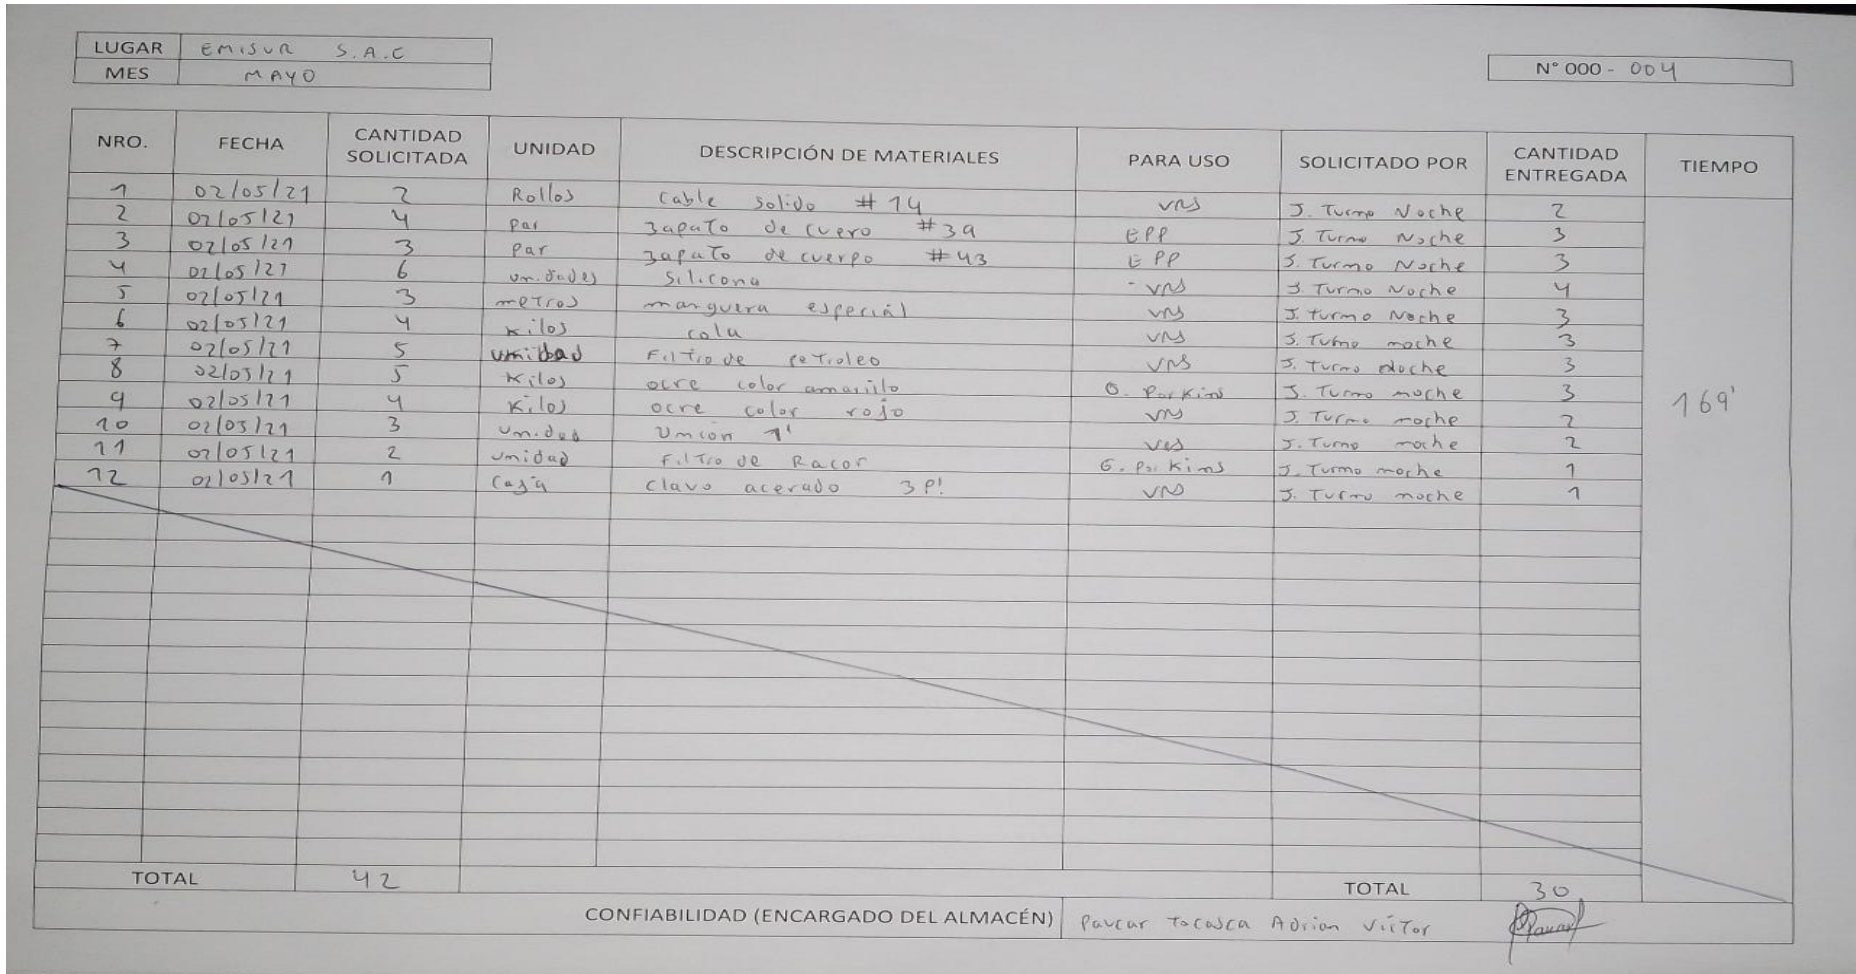 LUGAR EMISUR S.A.C
MES MAYO
N° 000 - 004
NRO. FECHA CANTIDAD SOLICITADA UNIDAD DESCRIPCIÓN DE MATERIALES PARA USO SOLICITADO POR CANTIDAD ENTREGADA TIEMPO
1 02/05/21 2 Rollos Cable solido #14 VRS J. Turno Noche 2
2 02/05/21 4 Par Zapato de cuero #39 EPP J. Turno Noche 3
3 02/05/21 3 Par Zapato de cuerpo #43 EPP J. Turno Noche 3
4 02/05/21 6 unidades Silicona VRS J. Turno Noche 4
5 02/05/21 3 metros manguera especial VRS J. turno Noche 3
6 02/05/21 4 Kilos cola VRS J. Turno noche 3
7 02/05/21 5 unidad Filtro de petroleo VRS J. Turno Noche 3
8 02/05/21 5 Kilos ocre color amarillo G. Porkins J. Turno noche 3
9 02/05/21 4 Kilos ocre color rojo VRS J. Turno noche 2
10 02/05/21 3 unidad Union 1" J. Turno noche 2
11 02/05/21 2 unidad Filtro de Racor G. Porkins J. Turno noche 1
12 02/05/21 1 Caja clavo acerado 3 P! VRS J. Turno noche 1
169'
TOTAL 42 TOTAL 30
CONFIABILIDAD (ENCARGADO DEL ALMACÉN) Paucar Tocasca Adrian Victor